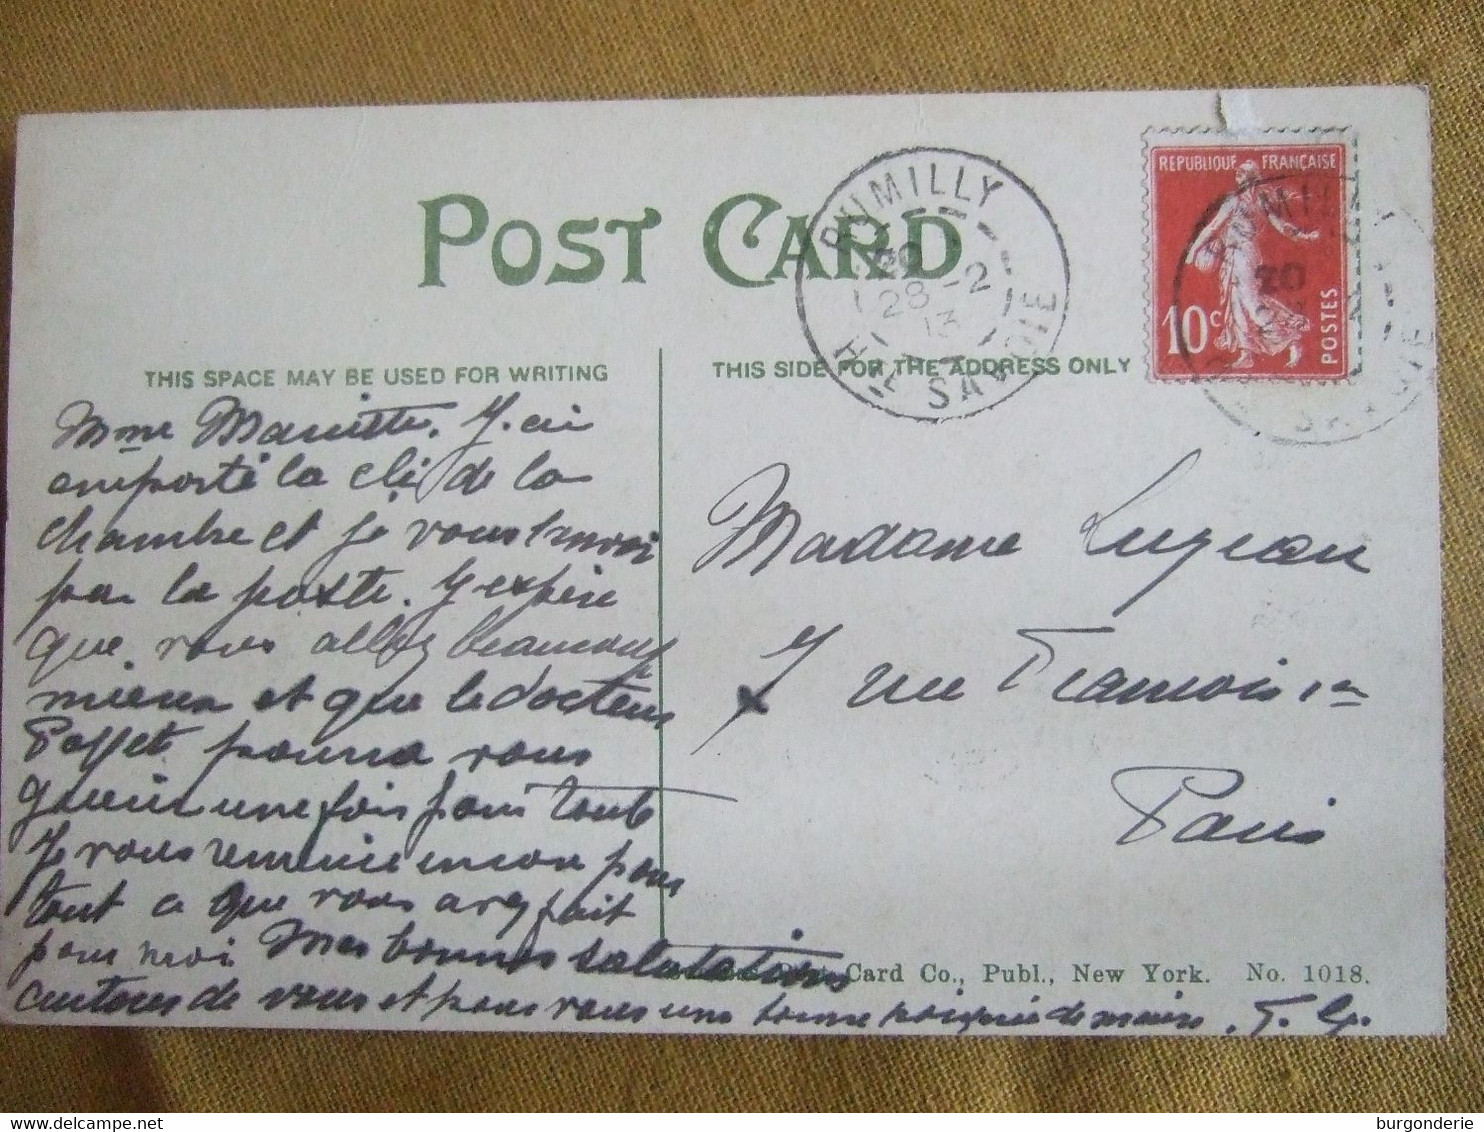 POST CARD
RUMILLY
20
28-2
13
HTE SAVOIE
REPUBLIQUE FRANÇAISE
10c
POSTES
RUMILLY
20
SAVOIE
THIS SPACE MAY BE USED FOR WRITING
THIS SIDE FOR THE ADDRESS ONLY
Mme Mariette. J'ai
emporté la clé de la
chambre et je vous l'envoi
par la poste. J'espère
que vous allez beaucoup
mieux et que le docteur
Poffet pourra vous
guérir une fois pour toute
Je vous remercie encore pour
tout ce que vous avez fait
pour moi Mes bonnes salutations
autour de vous et pour vous une bonne poignée de main.
Madame
7 rue François 1er
Paris
Card Co., Publ., New York. No. 1018.
burgonderie